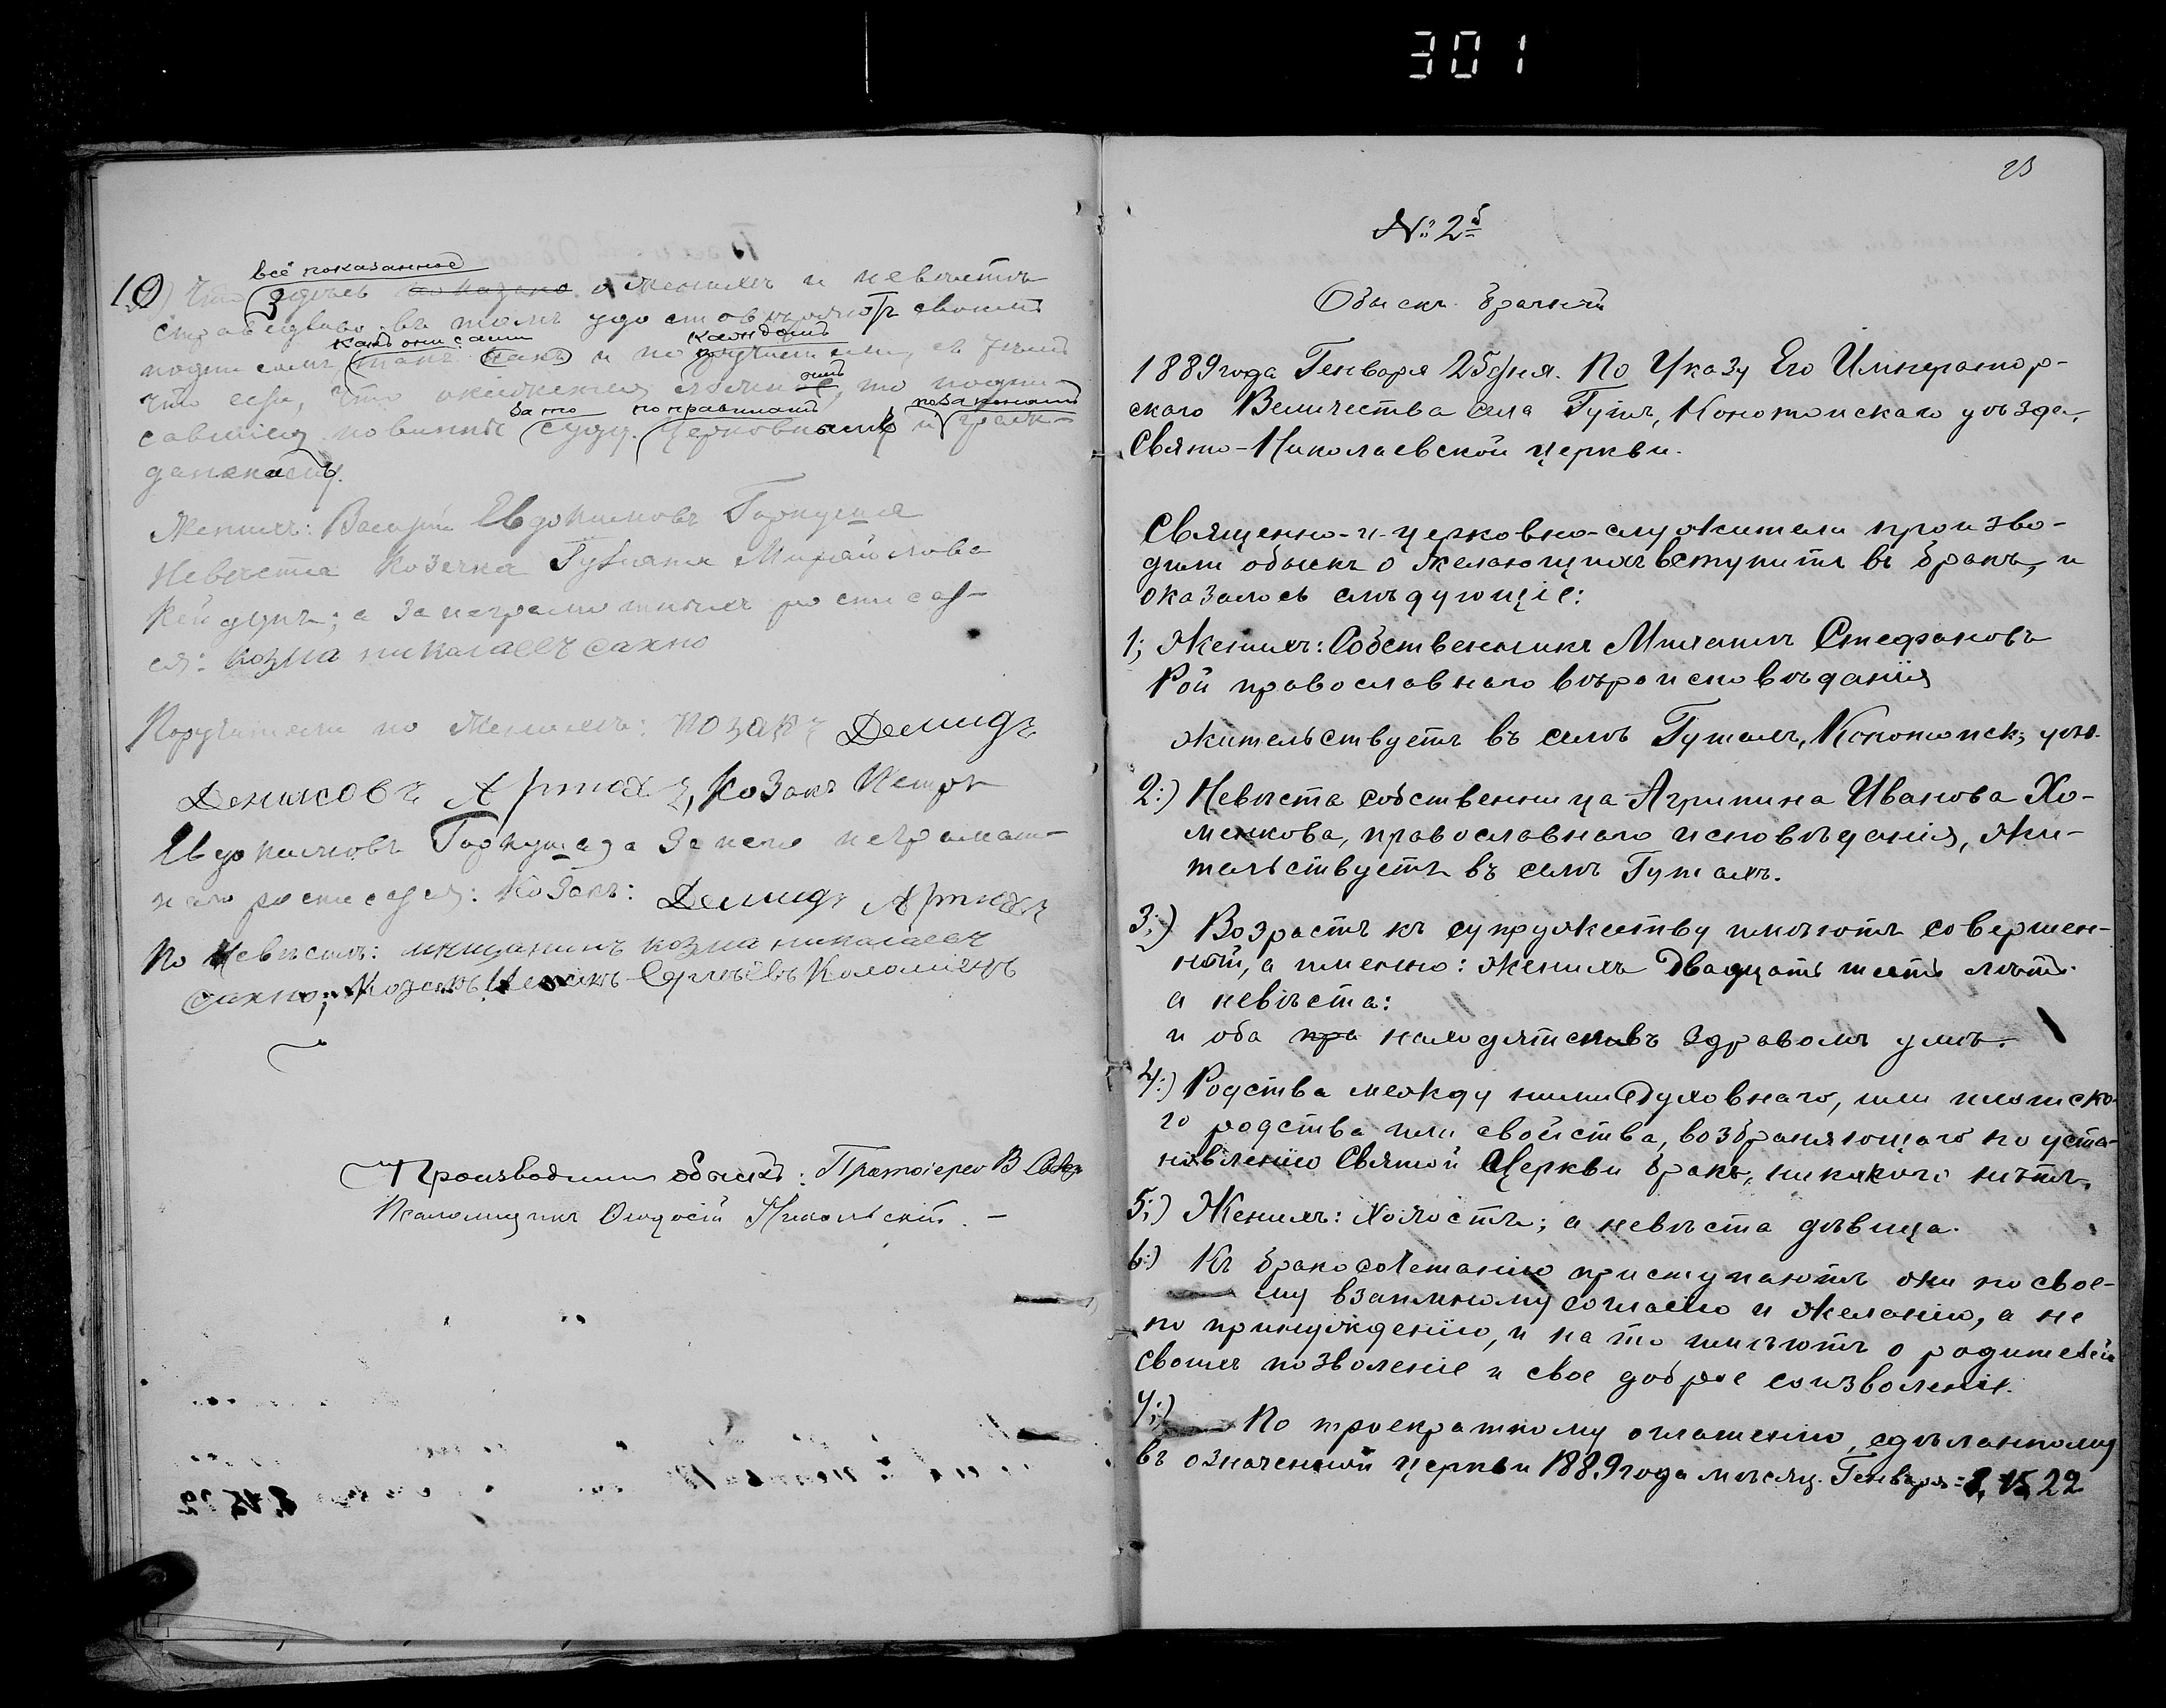 301
всё показанное
10) Что здѣсь показано о женихѣ и невѣстѣ
справедливо въ томъ удостовѣряютъ своимъ
какъ они сами каждый
подписомъ такъ какъ и по ручители, съ тѣмъ
что если, что окажется ложное, то подпи-
за то по правиламъ по законамъ
савшіеся повинны суду церковныхъ и граж-
данскому.
Женихъ: Евдокимовъ Гаркуша
Невѣста козачка Михайлова
а за неграмотныхъ росписал-
ся: козма николаевъ сахно
Поручители по женихѣ: козакъ Демидъ
Денисовъ Артюхъ, козакъ Петръ
Евдокимовъ Гаркуша а за него неграмот-
наго росписался: козакъ: Демидъ Артюхъ
По невѣстѣ: мещанинъ козма николаевъ
сахно; козакъ
Производили обыскъ: Протоіерей В
Псаломщикъ Никольскій. —
23
№: 2й
Обыскъ брачный
1889 года Генваря 25 дня. По Указу Его Император-
скаго Величества села Гутъ, Конотопскаго уѣзда,
Свято-Николаевской церкви.
Священно-и-церковно-служители произво-
дили обыскъ о желающихъ вступить въ бракъ, и
оказалось слѣдующіе:
1; Женихъ: Собственникъ Михаилъ Стефановъ
Рой православнаго вѣроисповѣданія
жительствуетъ въ селѣ Гутахъ, Конотопск; уѣз.
2:) Невѣста собственница Агрипина Иванова Хо-
менкова, православнаго исповѣданія, жи-
тельствуетъ въ селѣ Гутахъ.
3;) Возрастъ къ супружеству имѣютъ совершен-
ный, а именно: женихъ Двадцать шесть лѣтъ.
а невѣста:
и оба пра находятся въ здравомъ умѣ.
4:) Родства между ними духовнаго, или плотско-
го родства или свойства, возбраняющаго по уста-
новленію Святой Церкви бракъ, никакого нѣтъ.
5;) Женихъ: холостъ; а невѣста дѣвица.
6:) Къ бракосочетанію приступаютъ они по свое-
му взаимному согласію и желанію, а не
по принужденію, и на то имѣютъ о родителей
своихъ позволеніе и свое доброе соизволеніе.
7;) По троекратному оглашенію, сдѣланному
въ означенной церкви 1889 года мѣсяц. Генваря: 8, 15, 22